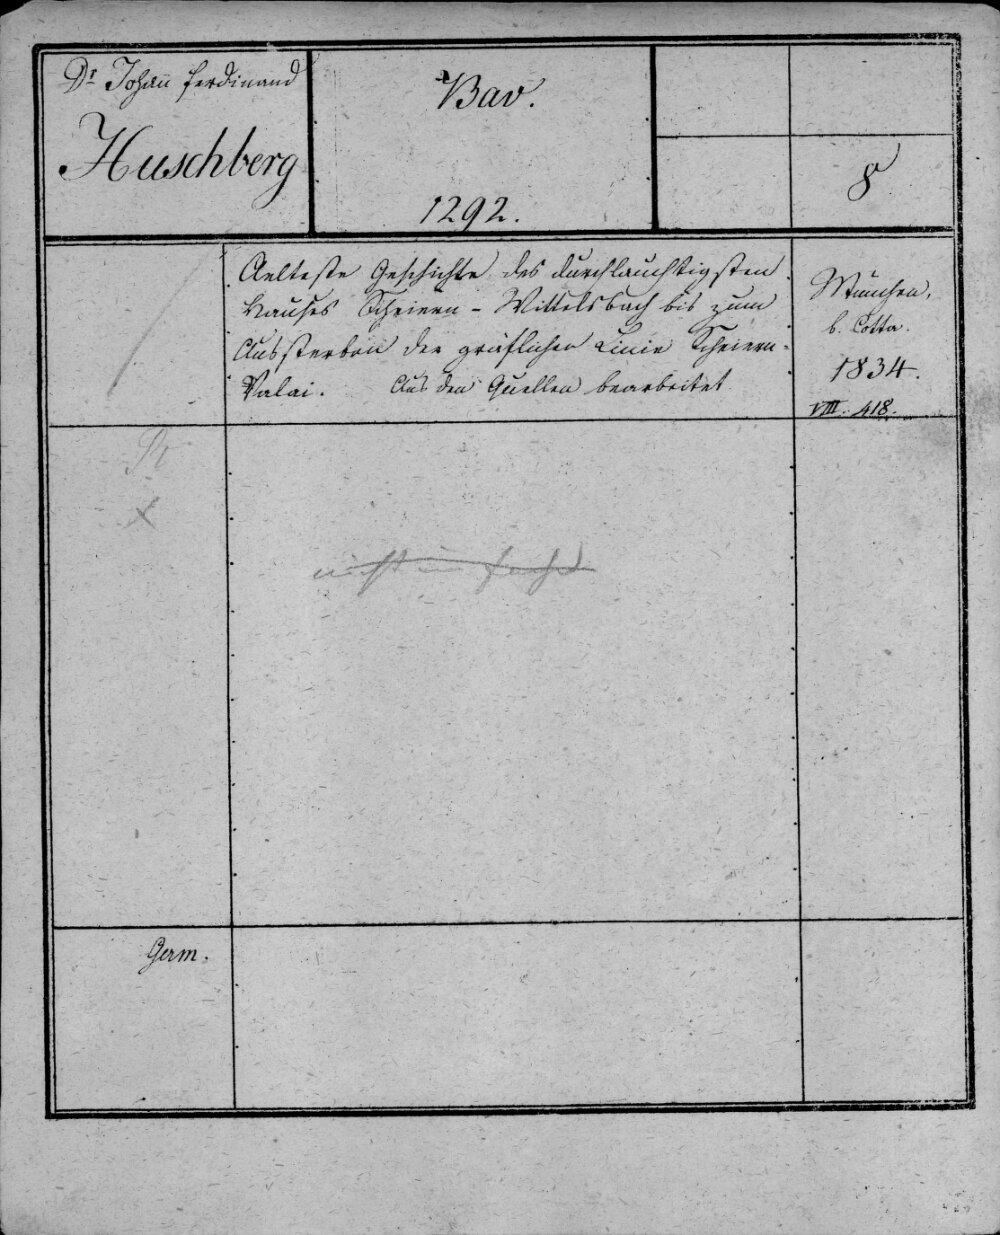 Dr Johañ Ferdinand
Huschberg
Bav.
1292.
8
Aelteste Geschichte des durchlauchtigsten
Hauses Scheiern - Wittelsbach bis zum
Aussterben der gräflichen Linie Scheiern-
Valai. Aus den Quellen bearbeitet
München,
b. Cotta.
1834.
VIII. 418.
x
nicht im Fache
Germ.